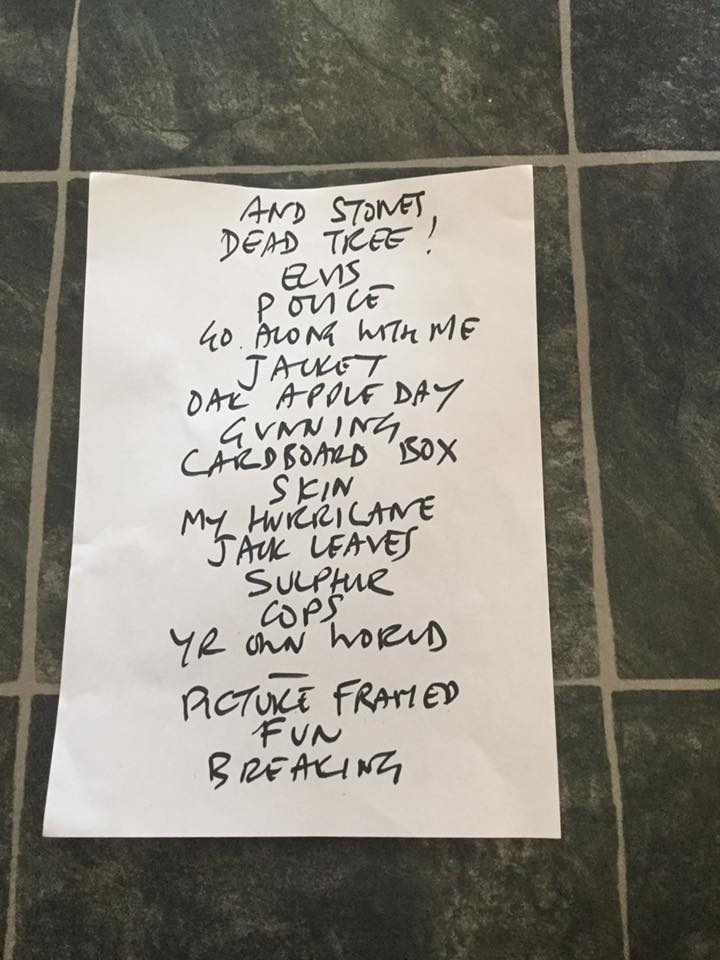 AND STONES,
DEAD TREE!
ELVIS
POLICE
GO ALONG WITH ME
JACKET
OAK APPLE DAY
GUNNING
CARDBOARD BOX
SKIN
MY HURRICANE
JACK LEAVES
SULPHUR
COPS
YR OWN WORLD
—
PICTURE FRAMED
FUN
BREAKING